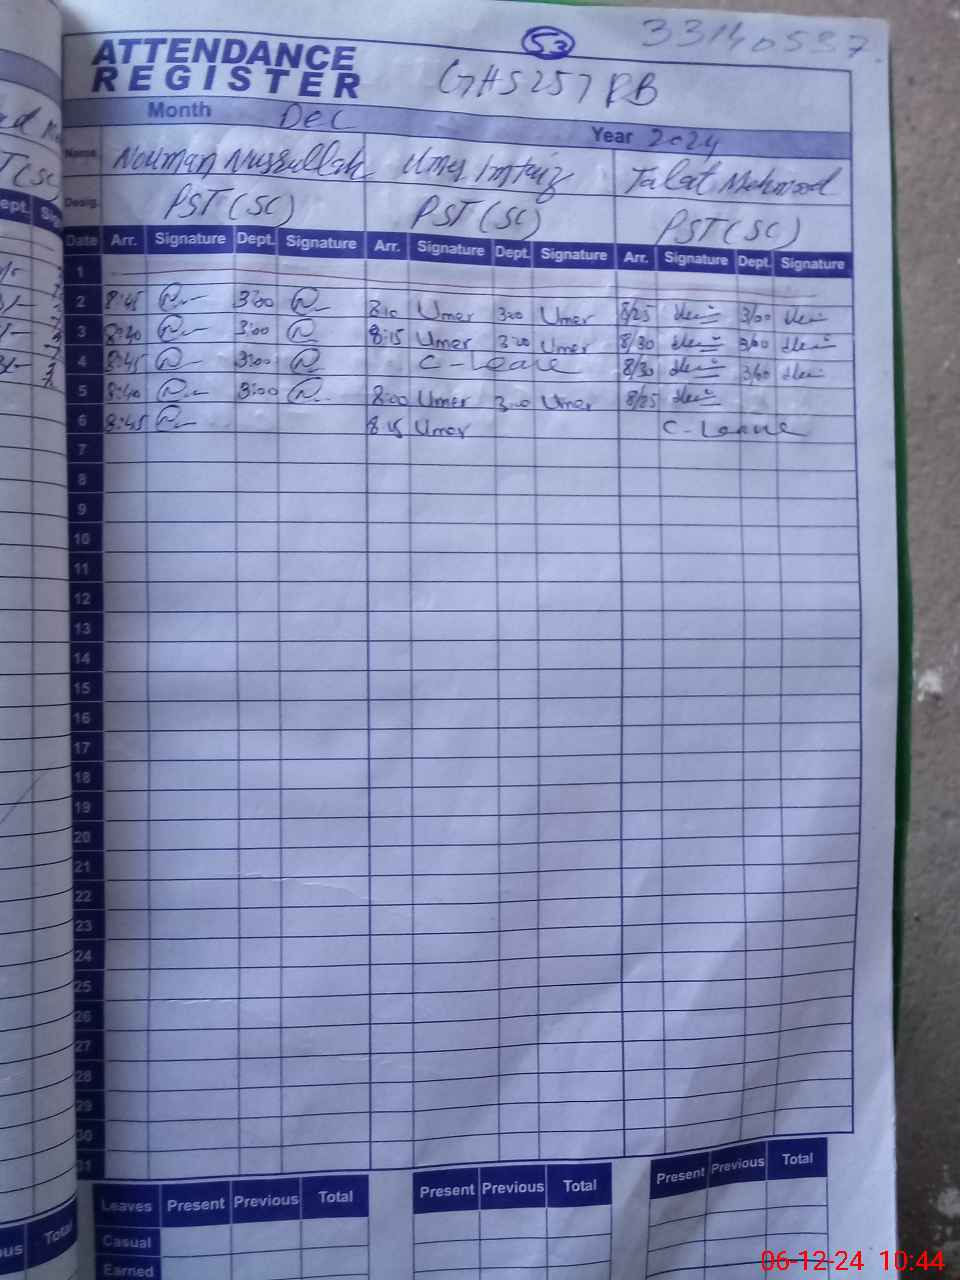 53 33140537
ATTENDANCE
REGISTER
GHS 257 RB
Month Dec Year 2024
Name Nouman Nussullah Umer Imtiaz Talat Mehmood
Desig. PST (SC) PST (SC) PST (SC)
Date Arr. Signature Dept. Signature Arr. Signature Dept. Signature Arr. Signature Dept. Signature
1
2 8:45 3:00 8:10 Umer 3:00 Umer 8/25 3/00
3 8:40 3:00 8:15 Umer 3:00 Umer 8/30 3/00
4 8:45 3:00 C-Leave 8/30 3/00
5 8:40 3:00 8:00 Umer 3:00 Umer 8/25
6 8:45 8:15 Umer C-Leave
7
8
9
10
11
12
13
14
15
16
17
18
19
20
21
22
23
24
25
26
27
28
29
30
31
Leaves Present Previous Total Present Previous Total Present Previous Total
Casual
Earned
06-12-24 10:44